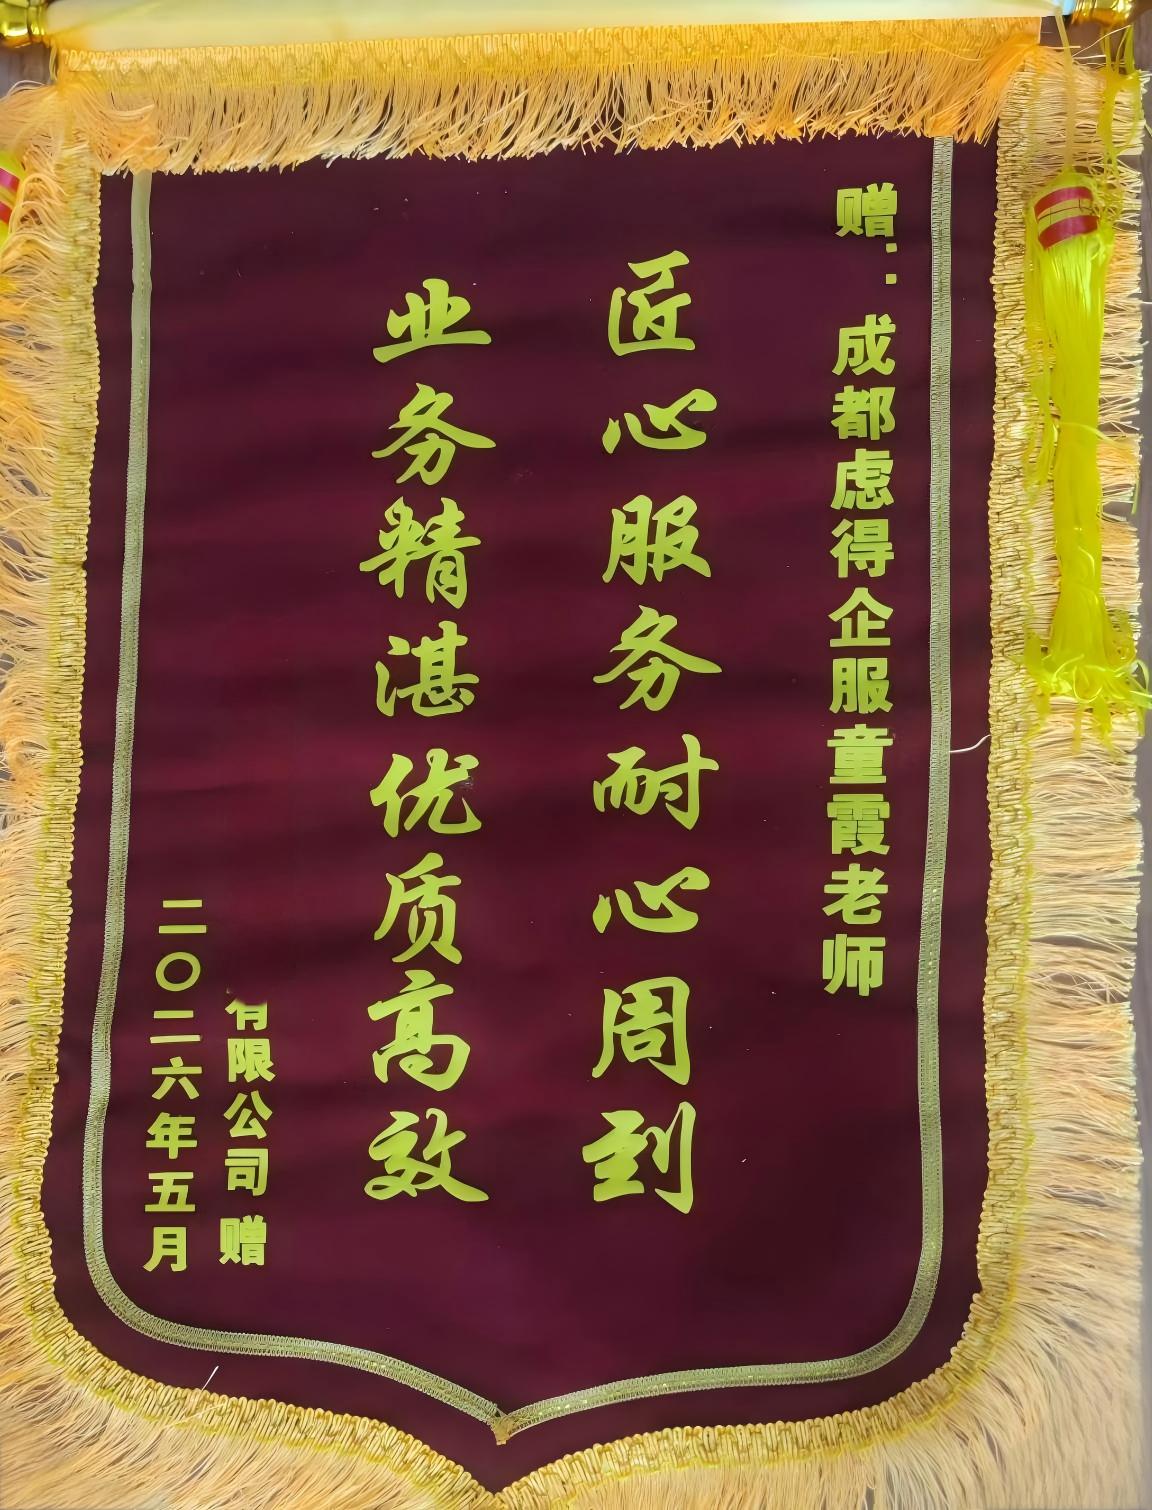 赠：成都虑得企服童霞老师
匠心服务耐心周到
业务精湛优质高效
有限公司 赠
二〇二六年五月